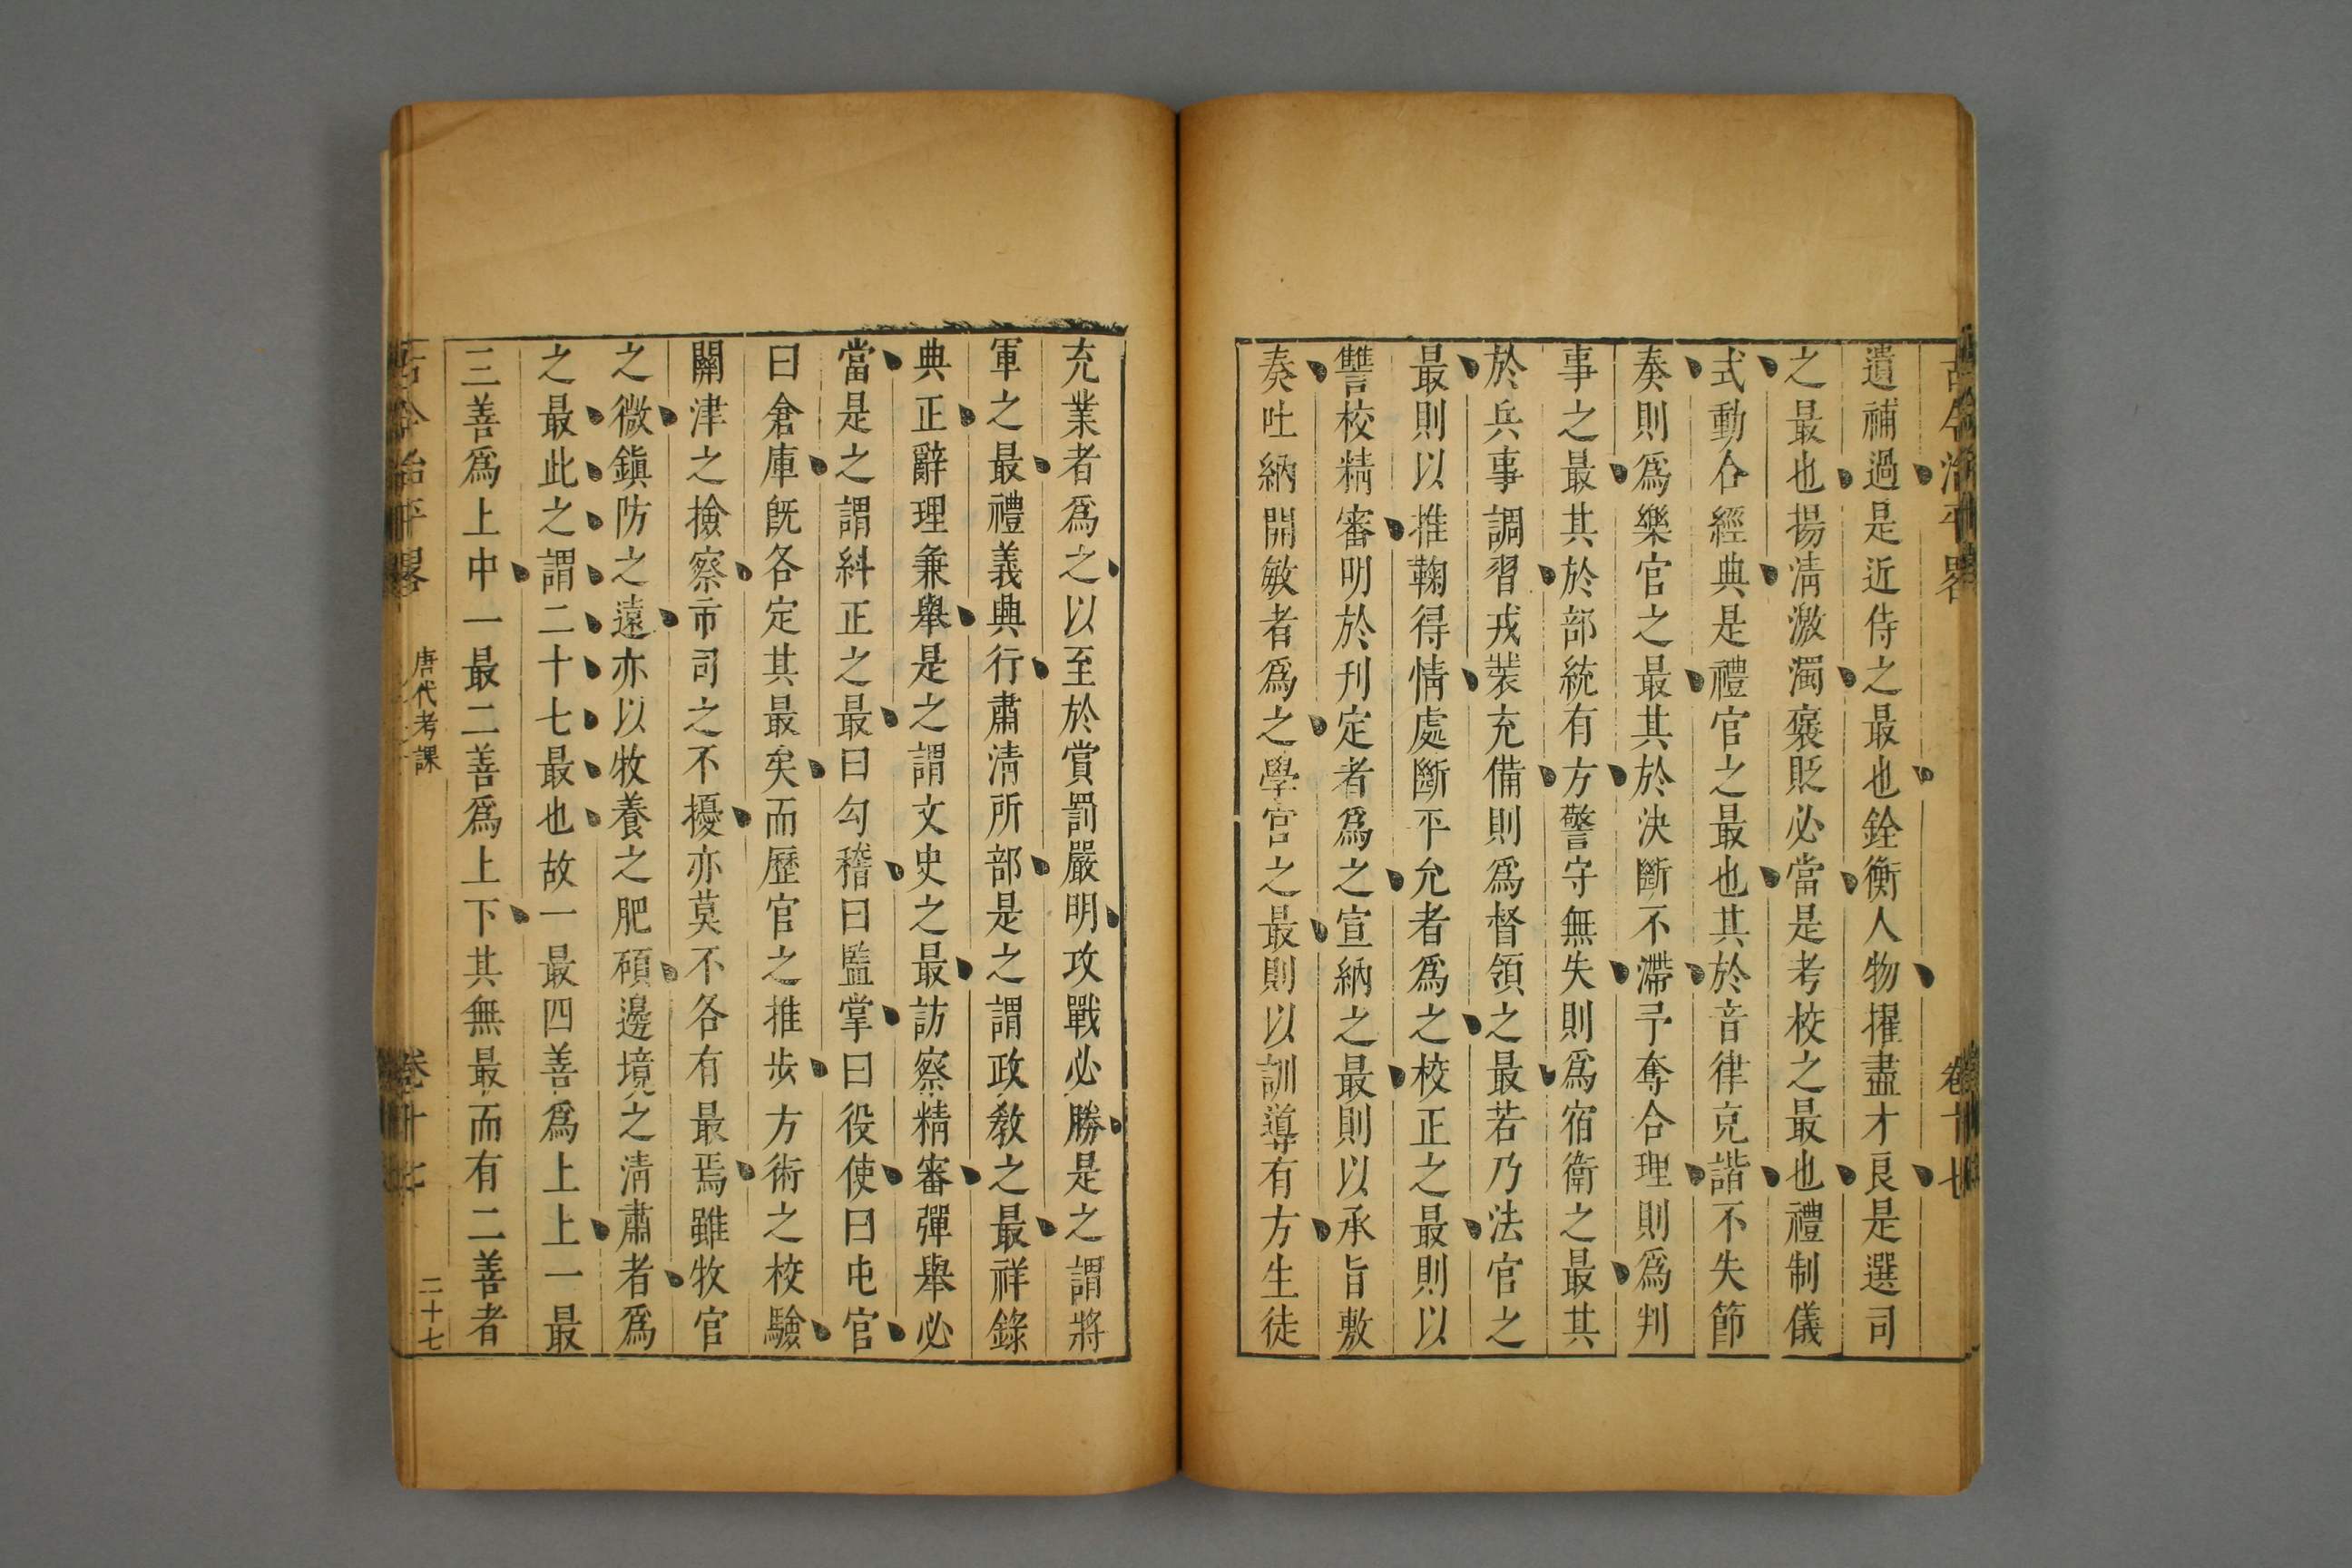 古今治平畧 卷十七
遺補過是近侍之最也銓衡人物擢盡才良是選司
之最也揚淸激濁褒貶必當是考校之最也禮制儀
式動合經典是禮官之最也其於音律克諧不失節
奏則爲樂官之最其於決斷不滯予奪合理則爲判
事之最其於部統有方警守無失則爲宿衛之最其
於兵事調習戎裝充備則爲督領之最若乃法官之
最則以推鞠得情處斷平允者爲之校正之最則以
讐校精審明於刊定者爲之宣納之最則以承旨敷
奏吐納開敏者爲之學官之最則以訓導有方生徒
充業者爲之以至於賞罰嚴明攻戰必勝是之謂將
軍之最禮義興行肅淸所部是之謂政敎之最祥錄
典正辭理兼舉是之謂文史之最訪察精審彈舉必
當是之謂糾正之最曰勾稽曰監掌曰役使曰屯官
曰倉庫旣各定其最矣而歷官之推步方術之校驗
關津之撿察市司之不擾亦莫不各有最焉雖牧官
之微鎭防之遠亦以牧養之肥碩邊境之淸肅者爲
之最此之謂二十七最也故一最四善爲上上一最
三善爲上中一最二善爲上下其無最而有二善者
古今治平畧 唐代考課 卷十七 二十七